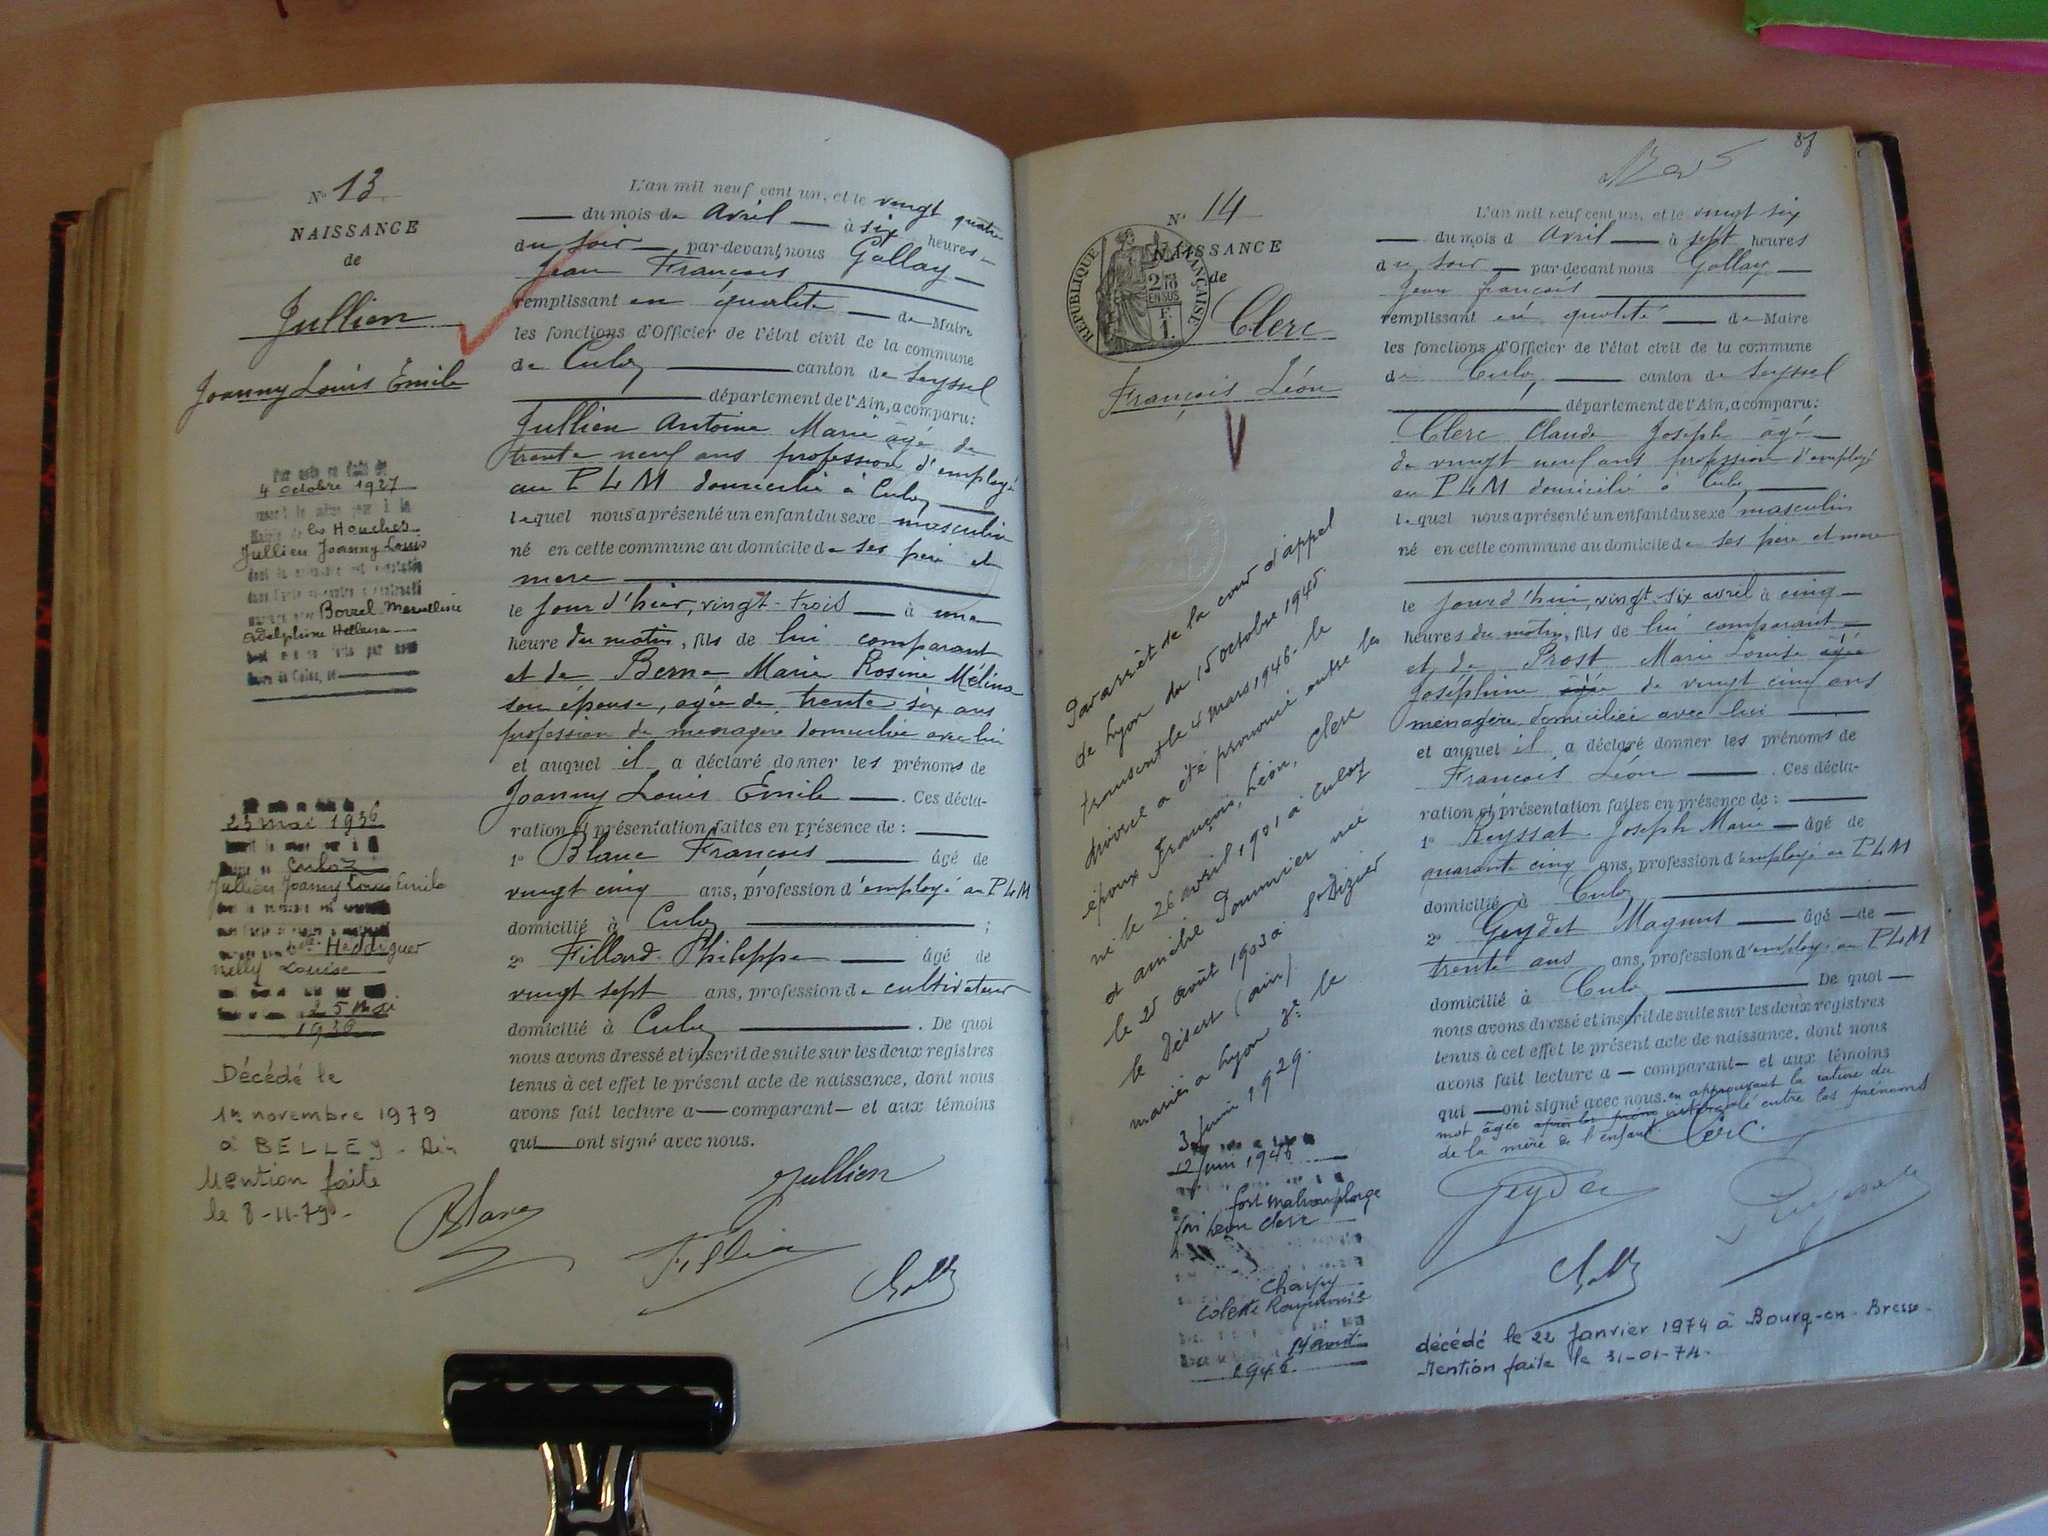 N° 13
NAISSANCE
de
Jullien
Joanny Louis Emile
4 octobre 1927
les Houches
Jullien Joanny Louis
Borrel Marcelline
Adelphine Hélèna
25 mai 1936
Culoz
Jullien Joanny Louis Emile
Heddiguer
Nelly Louise
25 Mai
1936
Décédé le
1er novembre 1979
à BELLEY - Ain
Mention faite
le 8-11-79-
L'an mil neuf cent un, et le vingt quatre
du mois de Avril à six heures
du soir par-devant nous Gallay
Jean François
remplissant en qualité de Maire
les fonctions d'Officier de l'état civil de la commune
de Culoz canton de Seyssel
département de l'Ain, a comparu:
Jullien Antoine Marie âgé de
trente neuf ans profession d'employé
au PLM domicilié à Culoz
lequel nous a présenté un enfant du sexe masculin
né en cette commune au domicile de ses père et
mère
le jour d'hier, vingt-trois à une
heure du matin, fils de lui comparant
et de Berne Marie Rosine Mélina
son épouse, agée de trente six ans
profession de ménagère domiciliée avec lui
et auquel il a déclaré donner les prénoms de
Joanny Louis Emile. Ces décla-
ration et présentation faites en présence de :
1° Blanc François âgé de
vingt cinq ans, profession d'employé au PLM
domicilié à Culoz ;
2° Fillard Philippe âgé de
vingt sept ans, profession de cultivateur
domicilié à Culoz. De quoi
nous avons dressé et inscrit de suite sur les deux registres
tenus à cet effet le présent acte de naissance, dont nous
avons fait lecture a — comparant — et aux témoins
qui — ont signé avec nous.
Jullien
Blanc
87
N° 14
NAISSANCE
de
RÉPUBLIQUE FRANÇAISE
2/10
EN SUS
1 F.
Clerc
François Léon
V
Par arrêt de la cour d'appel
de Lyon du 15 octobre 1945
transcrit le 4 mars 1946- le
divorce a été prononcé entre les
époux François, Léon, Clerc
né le 26 avril 1901 à Culoz
et Amélie Pommier née
le 25 août 1903 à St Dizier
le Désert (ain)
mariés a Lyon 3e le
3 juin 1929.
12 juin 1946
Léon Clerc
Charpy
Colette Raymonde
1946
L'an mil neuf cent un, et le vingt six
du mois d Avril à sept heures
du soir par-devant nous Gallay
Jean François
remplissant en qualité de Maire
les fonctions d'Officier de l'état civil de la commune
de Culoz canton de Seyssel
département de l'Ain, a comparu:
Clerc Claude Joseph âgé
de vingt neuf ans profession d'employé
au PLM domicilié à Culoz
lequel nous a présenté un enfant du sexe masculin
né en cette commune au domicile de ses père et mère
le jour d'hui, vingt six avril à cinq
heures du matin, fils de lui comparant
et de Prost Marie Louise âgée
Joséphine âgée de vingt cinq ans
ménagère domiciliée avec lui
et auquel il a déclaré donner les prénoms de
François Léon. Ces décla-
ration et présentation faites en présence de :
1° Reyssat Joseph Marie âgé de
quarante cinq ans, profession d'employé au PLM
domicilié à Culoz
2° Geydet Magnus âgé de
trente ans ans, profession d'employé au PLM
domicilié à Culoz De quoi
nous avons dressé et inscrit de suite sur les deux registres
tenus à cet effet le présent acte de naissance, dont nous
avons fait lecture a — comparant — et aux témoins
qui — ont signé avec nous. en approuvant la rature du
mot âgée intercalé entre les prénoms
de la mère de l'enfant Clerc.
décédé le 22 Janvier 1974 à Bourg-en-Bresse.
Mention faite le 31-01-74.